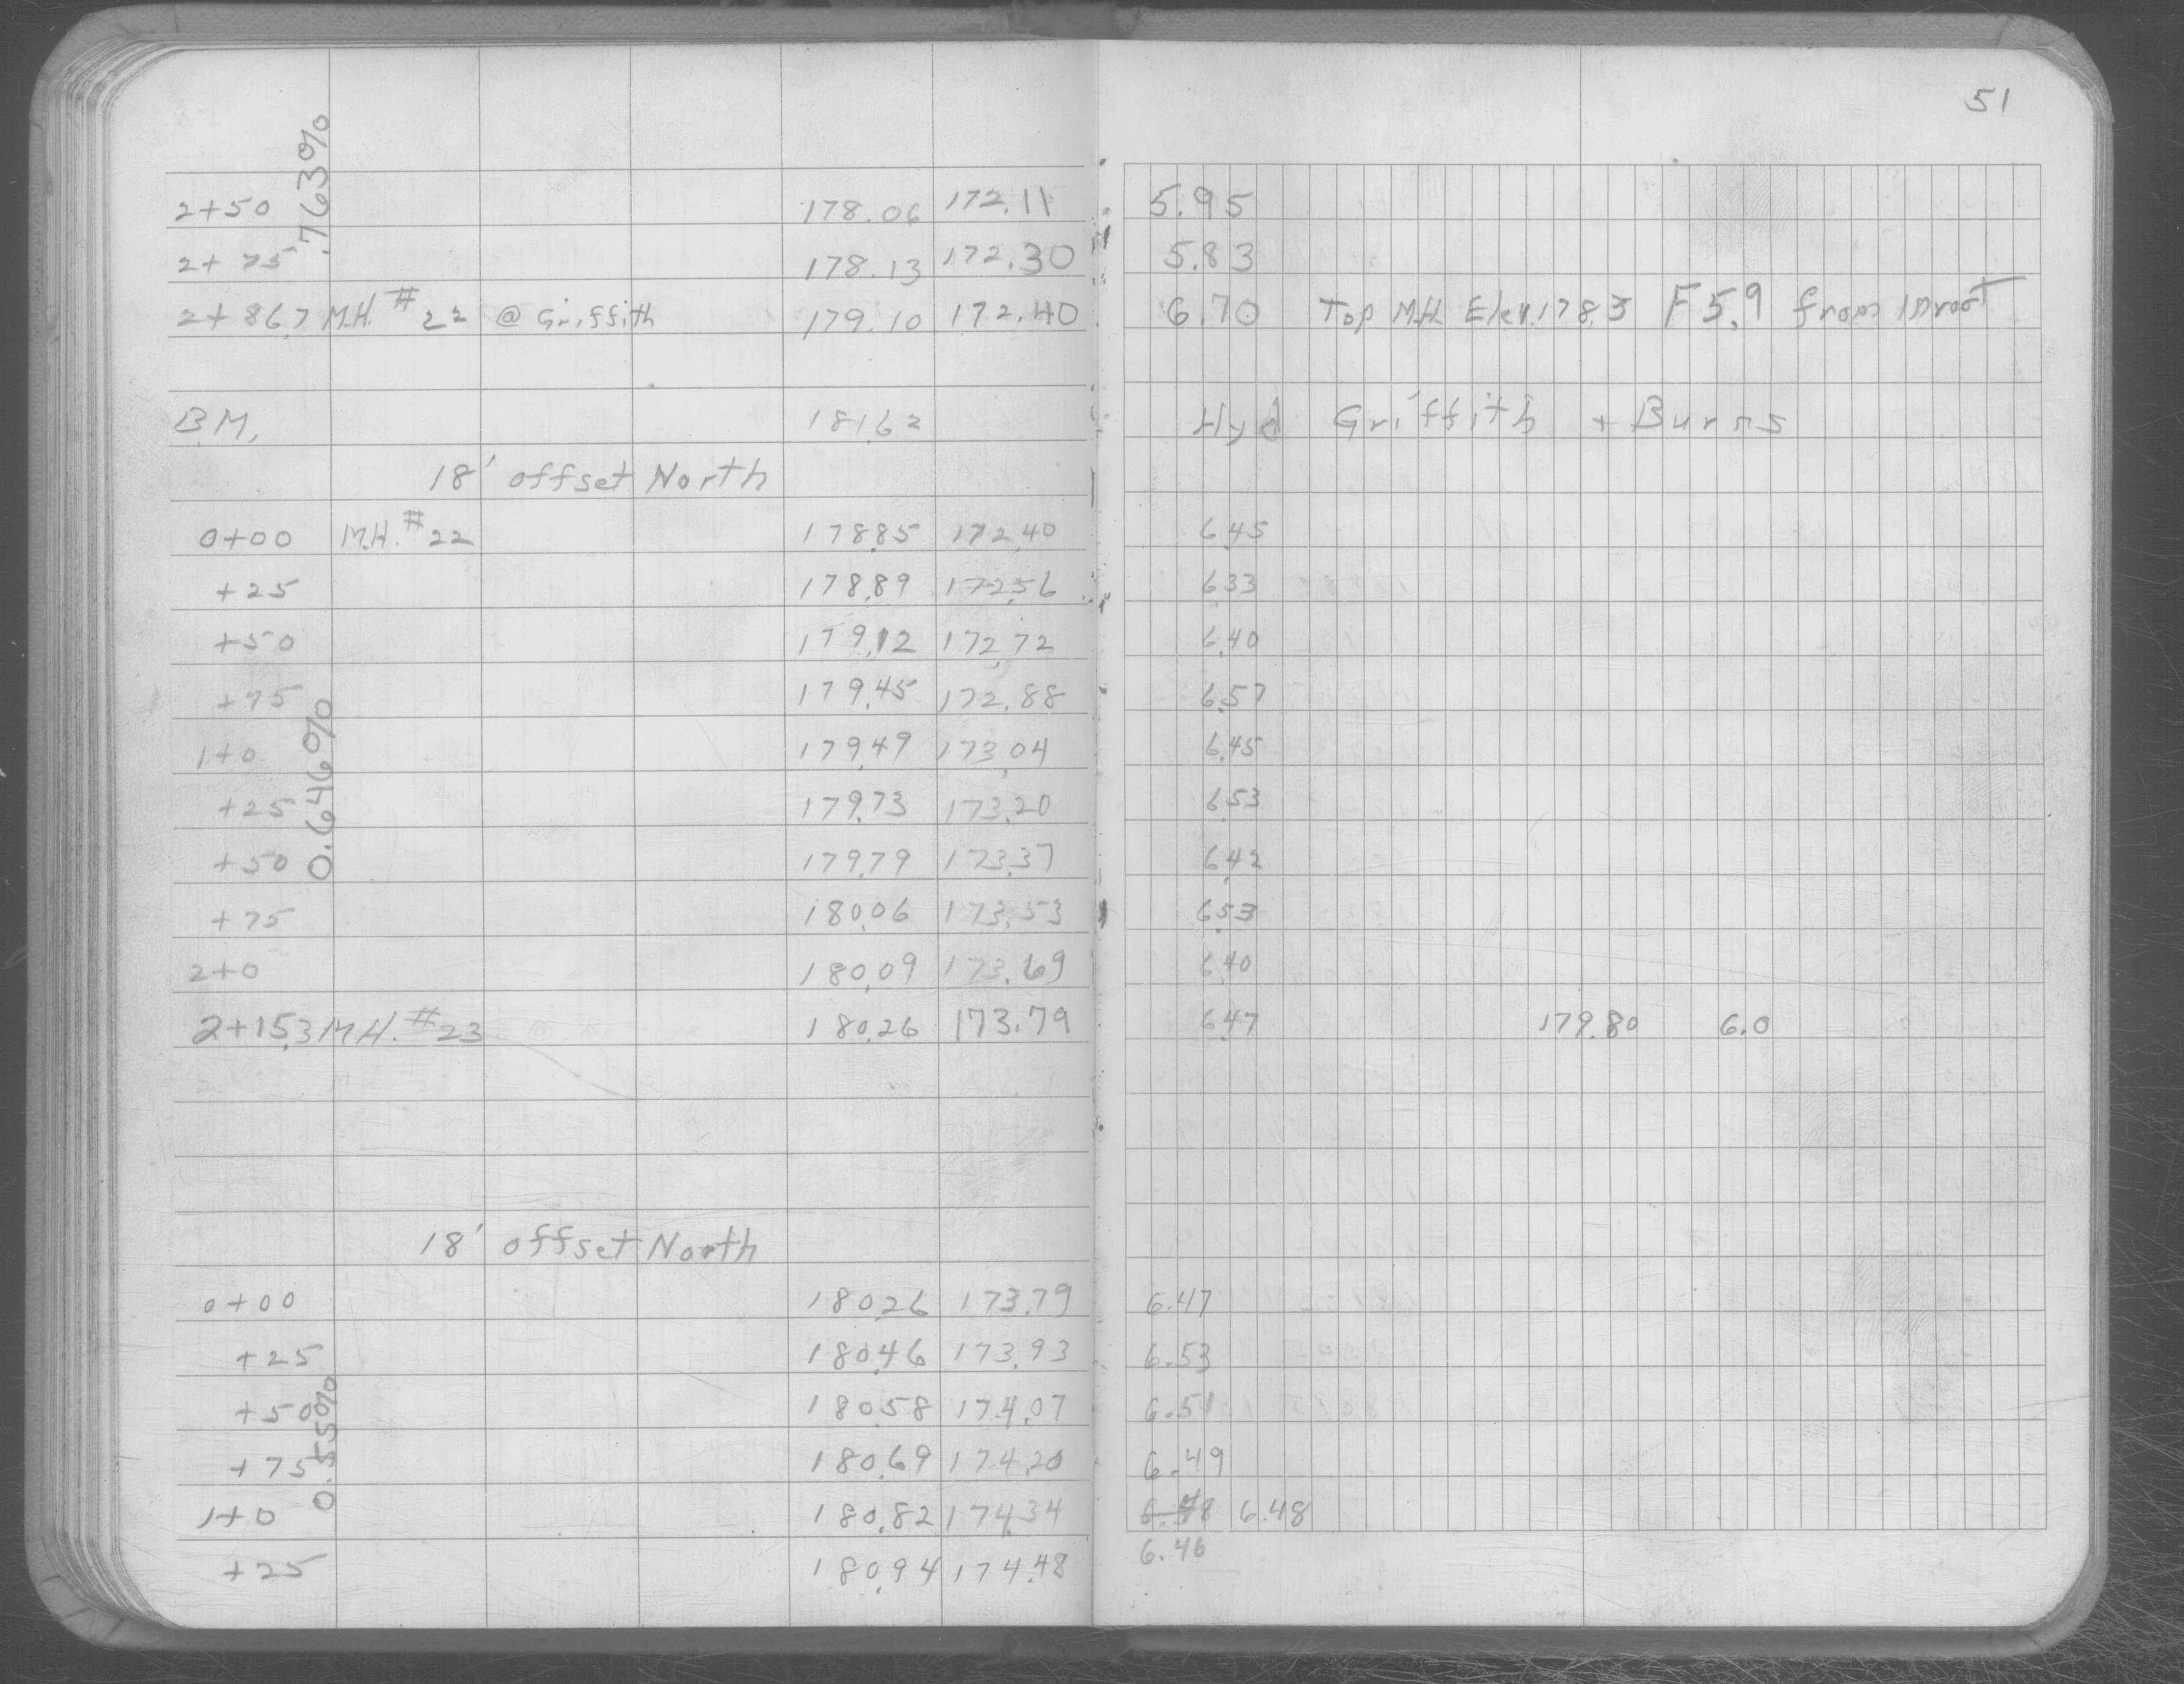 51
.763%
2+50 178.06 172.11 5.95
2+75 178.13 172.30 5.83
2+86.7 M.H. #22 @ Griffith 179.10 172.40 6.70 Top M.H. Elev. 178.3 F 5.9 from Invert
B.M. 181.62 Hyd Griffith + Burns
18' offset North
0+00 M.H. #22 178.85 172.40 6.45
+25 178.89 172.56 6.33
+50 179.12 172.72 6.40
+75 179.45 172.88 6.57
0.646%
1+0 179.49 173.04 6.45
+25 179.73 173.20 6.53
+50 179.79 173.37 6.42
+75 180.06 173.53 6.53
2+0 180.09 173.69 6.40
2+15.3 M.H. #23 180.26 173.79 6.47 179.80 6.0
18' offset North
0+00 180.26 173.79 6.47
+25 180.46 173.93 6.53
+50 180.58 174.07 6.51
0.55%
+75 180.69 174.20 6.49
1+0 180.82 174.34 6.48
+25 180.94 174.48 6.46